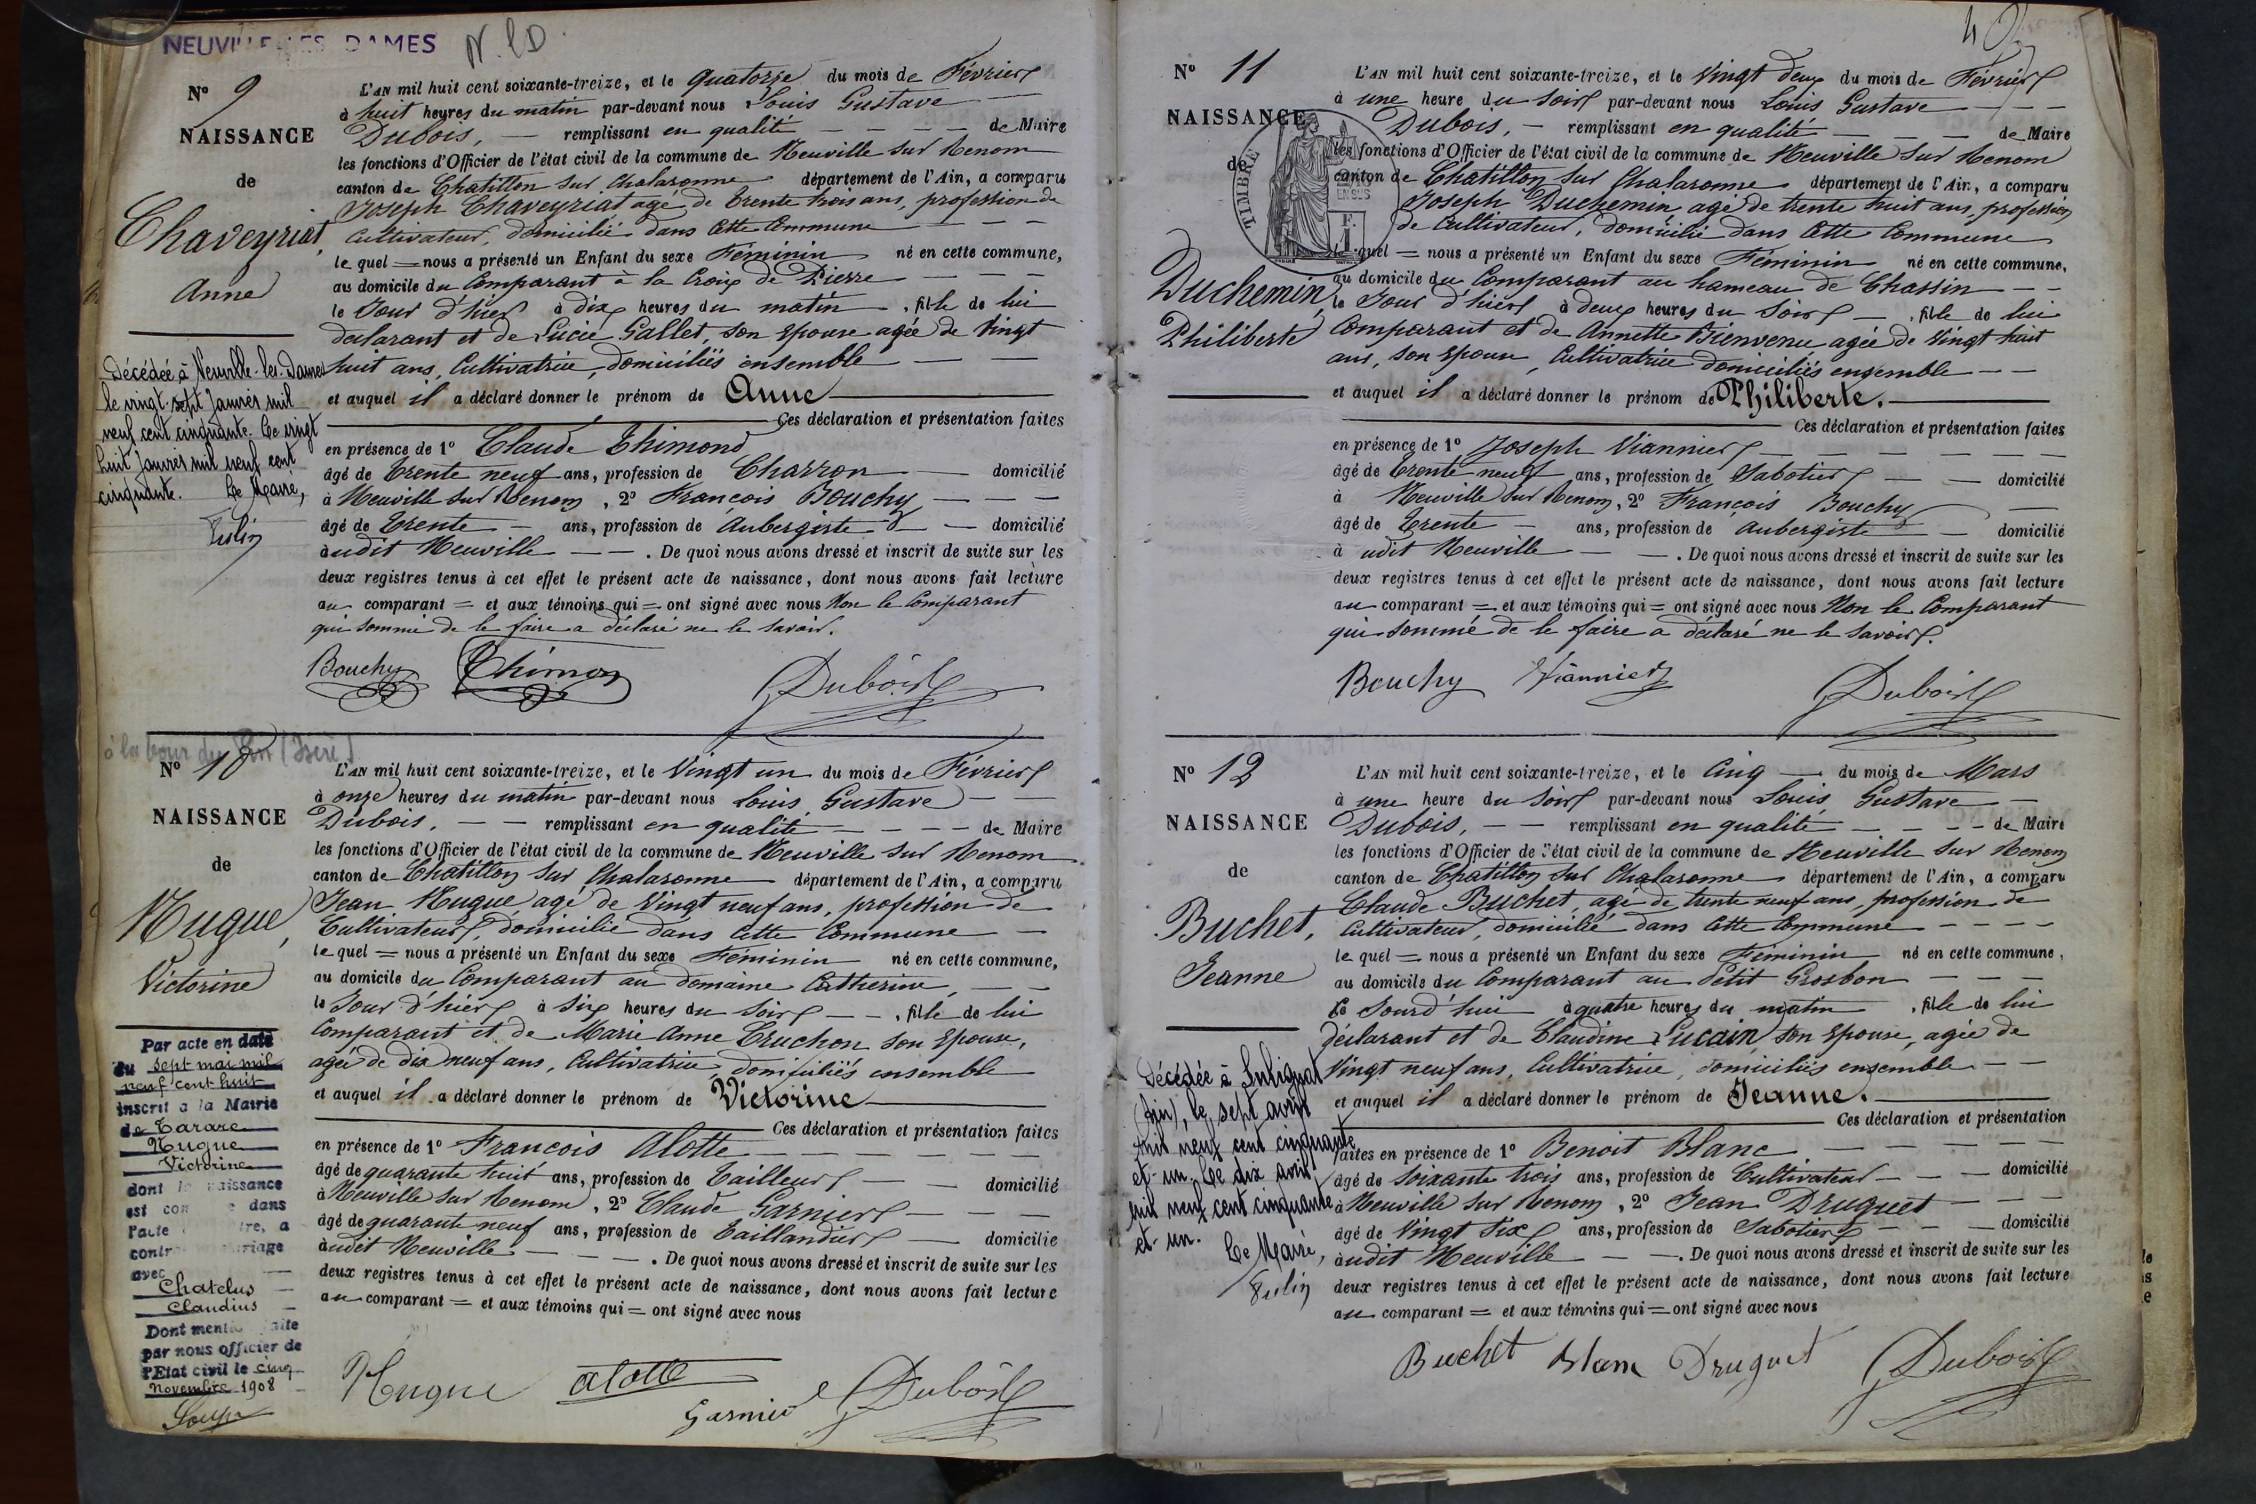 NEUVILLE-LES-DAMES N.LD.
N° 9
NAISSANCE
de
Chaveyriat,
Anne
Décédée à Neuville-les-Dames
le vingt-sept Janvier mil
neuf cent cinquante. Le vingt
huit Janvier mil neuf cent
cinquante. Le Maire,
L'AN mil huit cent soixante-treize, et le quatorze du mois de Février
à huit heures du matin par-devant nous Louis Gustave
Dubois, remplissant en qualité de Maire
les fonctions d'Officier de l'état civil de la commune de Neuville sur Renom
canton de Chatillon sur Chalaronne département de l'Ain, a comparu
Joseph Chaveyriat agé de trente trois ans, profession de
Cultivateur, domicilié dans cette Commune
le quel = nous a présenté un Enfant du sexe Féminin né en cette commune,
au domicile du Comparant à la Croix de Pierre
le Jour d'hier à dix heures du matin, fille de lui
declarant et de Lucie Gallet, son épouse agée de vingt
huit ans, Cultivatrice, domiciliés ensemble
et auquel il a déclaré donner le prénom de Anne
Ces déclaration et présentation faites
en présence de 1° Claude Thimond
âgé de trente neuf ans, profession de Charron domicilié
à Neuville sur Renom, 2° François Bouchy
âgé de trente ans, profession de Aubergiste domicilié
audit Neuville. De quoi nous avons dressé et inscrit de suite sur les
deux registres tenus à cet effet le présent acte de naissance, dont nous avons fait lecture
au comparant = et aux témoins qui = ont signé avec nous Non le Comparant
qui sommé de le faire a déclaré ne le savoir.
Bouchy Thimon Dubois
à la tour du Pin (Isère)
N° 10
NAISSANCE
de
Nugue,
Victorine
Par acte en date
du sept mai mil
neuf cent huit
inscrit a la Mairie
de Tarare
Nugue
Victorine
dont la naissance
est con e dans
l'acte tre, a
contr riage
avec
Chatelus
Claudius
Dont menti aite
par nous officier de
l'Etat civil le cinq
Novembre 1908
L'AN mil huit cent soixante-treize, et le vingt un du mois de Février
à onze heures du matin par-devant nous Louis Gustave
Dubois, remplissant en qualité de Maire
les fonctions d'Officier de l'état civil de la commune de Neuville sur Renom
canton de Chatillon sur Chalaronne département de l'Ain, a comparu
Jean Nugue agé de vingt neuf ans, profession de
Cultivateur, domicilié dans cette Commune
le quel = nous a présenté un Enfant du sexe Féminin né en cette commune,
au domicile du Comparant au domaine Catherine,
le Jour d'hier à six heures du soir, fille de lui
Comparant et de Marie Anne Truchon son épouse,
agée de dix neuf ans, Cultivatrice, domiciliés ensemble
et auquel il a déclaré donner le prénom de Victorine
Ces déclaration et présentation faites
en présence de 1° François Alotte
âgé de quarante huit ans, profession de Tailleur domicilié
à Neuville sur Renom, 2° Claude Garnier
âgé de quarante neuf ans, profession de Taillandier domicilié
audit Neuville. De quoi nous avons dressé et inscrit de suite sur les
deux registres tenus à cet effet le présent acte de naissance, dont nous avons fait lecture
au comparant = et aux témoins qui = ont signé avec nous
Nugue alotte Garnier Dubois
N° 11
NAISSANCE
de
TIMBRE
Duchemin,
Philiberte
L'AN mil huit cent soixante-treize, et le vingt deux du mois de Février
à une heure du soir par-devant nous Louis Gustave
Dubois, remplissant en qualité de Maire
les fonctions d'Officier de l'état civil de la commune de Neuville sur Renom
canton de Chatillon sur Chalaronne département de l'Ain, a comparu
Joseph Duchemin, agé de trente huit ans, profession
de Cultivateur, domicilié dans cette Commune
le quel = nous a présenté un Enfant du sexe Féminin né en cette commune,
au domicile du Comparant au hameau de Chassin
le Jour d'hier à deux heures du soir, fille de lui
Comparant et de Annette Bienvenu agée de vingt huit
ans, son épouse, Cultivatrice domiciliés ensemble
et auquel il a déclaré donner le prénom de Philiberte.
Ces déclaration et présentation faites
en présence de 1° Joseph Viannier
âgé de trente neuf ans, profession de Sabotier domicilié
à Neuville sur Renom, 2° François Bouchy
âgé de trente ans, profession de Aubergiste domicilié
à udit Neuville. De quoi nous avons dressé et inscrit de suite sur les
deux registres tenus à cet effet le présent acte de naissance, dont nous avons fait lecture
au comparant = et aux témoins qui = ont signé avec nous Non le Comparant
qui sommé de le faire a déclaré ne le savoir.
Bouchy Viannier Dubois
N° 12
NAISSANCE
de
Buchet,
Jeanne
Décédée à Sulignat
(Ain), le sept avril
mil neuf cent cinquante
et-un. Le dix avril
mil neuf cent cinquante
et-un.
Le Maire,
L'AN mil huit cent soixante-treize, et le cinq du mois de Mars
à une heure du soir par-devant nous Louis Gustave
Dubois, remplissant en qualité de Maire
les fonctions d'Officier de l'état civil de la commune de Neuville sur Renom
canton de Chatillon sur Chalaronne département de l'Ain, a comparu
Claude Buchet, agé de trente neuf ans, profession de
Cultivateur, domicilié dans cette Commune
le quel = nous a présenté un Enfant du sexe Féminin né en cette commune,
au domicile du Comparant au Petit Grosbon
ce Jourd'hui à quatre heures du matin, fille de lui
déclarant et de Claudine Lucain, son épouse, agée de
vingt neuf ans, Cultivatrice, domiciliés ensemble
et auquel il a déclaré donner le prénom de Jeanne.
Ces déclaration et présentation
faites en présence de 1° Benoit Blanc
âgé de soixante trois ans, profession de Cultivateur domicilié
à Neuville sur Renom, 2° Jean Druguet
âgé de vingt six ans, profession de Sabotier domicilié
audit Neuville. De quoi nous avons dressé et inscrit de suite sur les
deux registres tenus à cet effet le présent acte de naissance, dont nous avons fait lecture
au comparant = et aux témoins qui = ont signé avec nous
Buchet Blanc Druguet Dubois